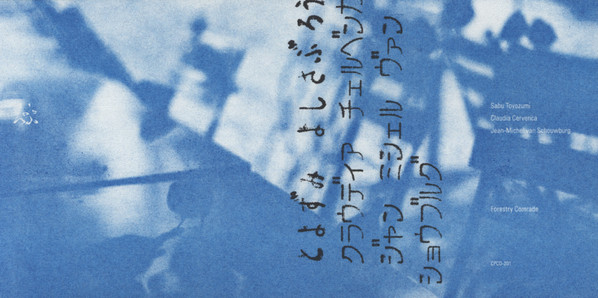 とよずみ よしさぶろう
クラウディア チェルベンカ
ジャン ミシェル ヴァン
ショウブルグ
Sabu Toyozumi
Claudia Cervenca
Jean-Michel van Schouwburg
Forestry Comrade